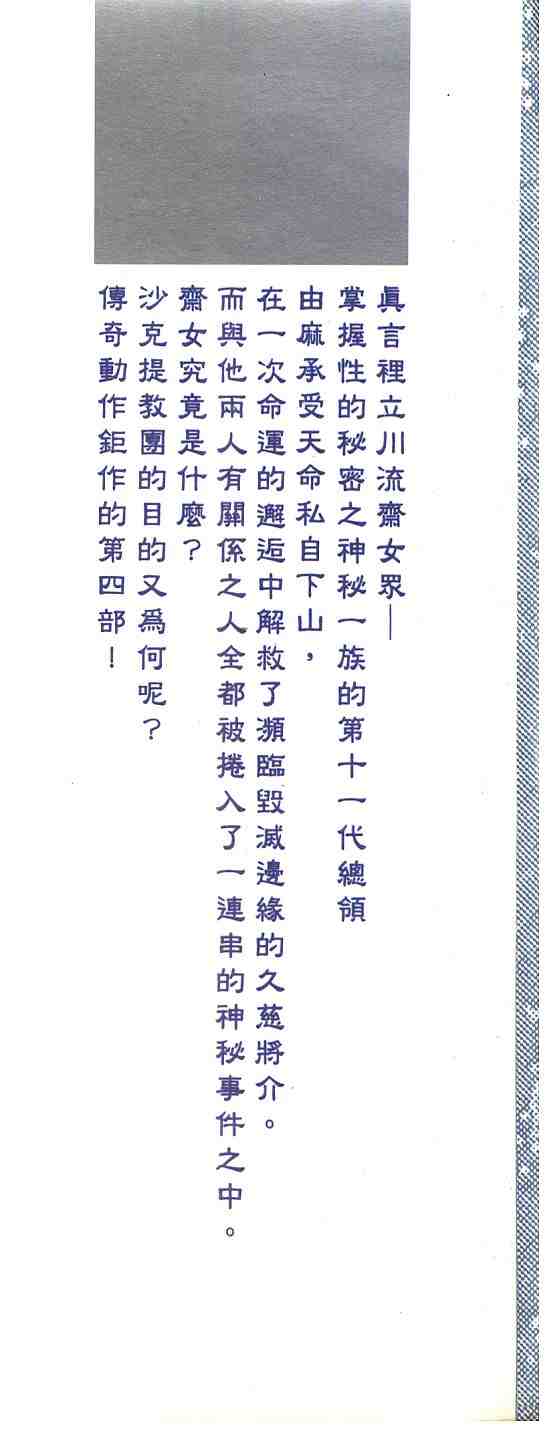 眞言裡立川流齋女眾—
掌握性的秘密之神秘一族的第十一代總領
由麻承受天命私自下山，
在一次命運的邂逅中解救了瀕臨毀滅邊緣的久慈將介。
而與他兩人有關係之人全都被捲入了一連串的神秘事件之中。
齋女究竟是什麼？
沙克提教團的目的又為何呢？
傳奇動作鉅作的第四部！